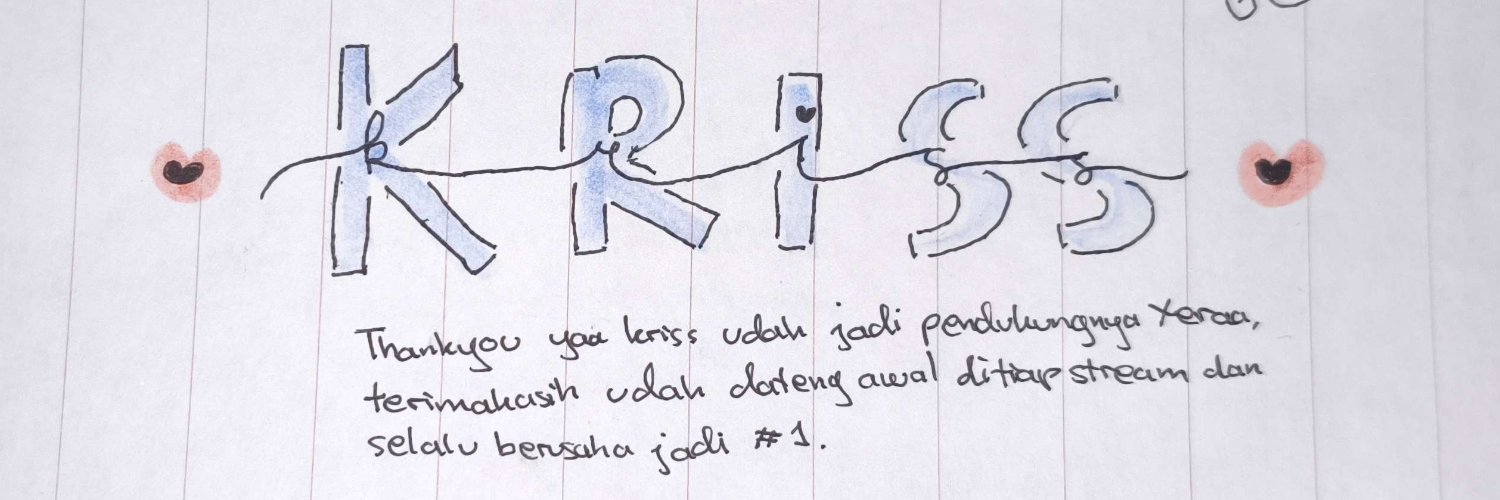 KRISS
Thankyou yaa kriss udah jadi pendukungnya Xeraa,
terimakasih udah dateng awal ditiap stream dan
selalu berusaha jadi #1.